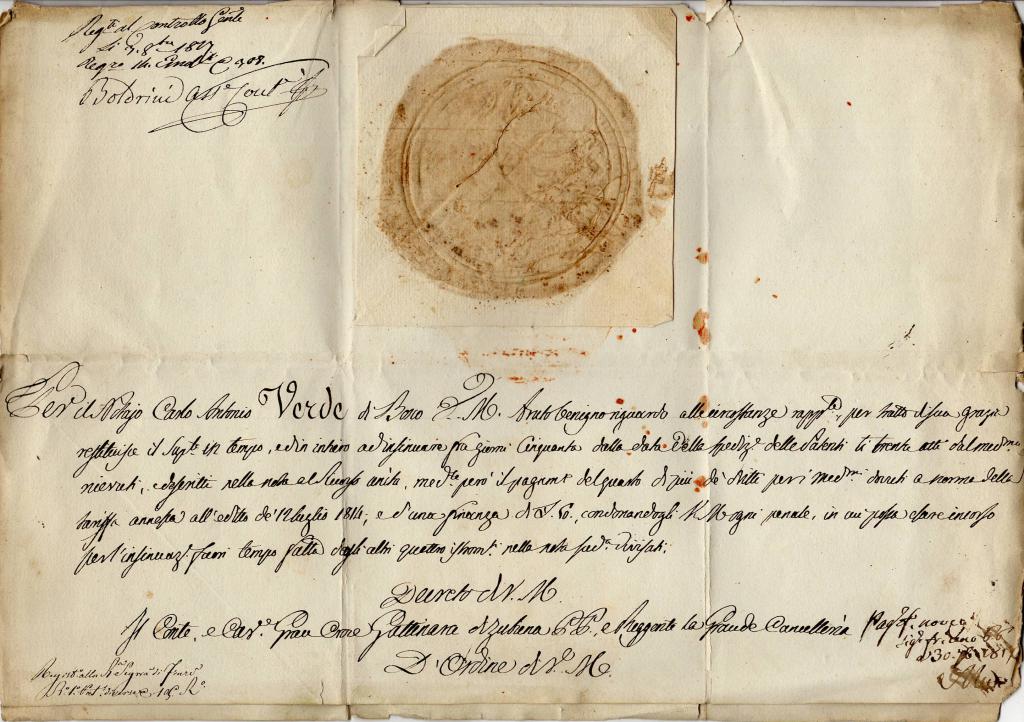 Reg.to al Controllo Gen.le
Li 3. 8bre 1817
Reg.ro 14. c. 308.
Boldrini
Per il Notajo Carlo Antonio Verde di Bono V. M. Avuto benigno riguardo alle circostanze rapp.te, per tratto di sua grazia
restituisce il Sup.te in tempo, ed in intiero ad insinuare fra giorni Cinquanta dalla data delle spediz.e delle Patenti li trenta atti dal med.mo
ricevuti, e descritti nella nota al Ricorso unita, med.te però il pagam.to del quarto di più de' dritti per i med.mi dovuti a norma della
tariffa annessa all'editto de' 12 luglio 1814, e d'una finanza di £. 60, condonandogli V. M. ogni penale, in cui possa essere incorso
per l'insinuaz.e fuori tempo fatta degli altri quattro istrom.ti nella nota sud.a divisati;
Decreto di V. M.
Il Conte, e Cav.e Gran Croce Gattinara di Zubiena P.P., e Reggente la Grande Cancelleria
D'Ordine di V. M.
Pag.
30 1817
Registr. alla